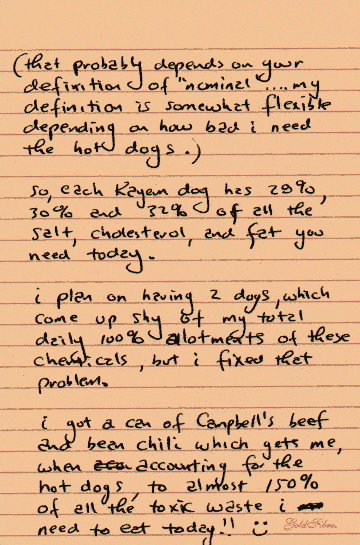 (that probably depends on your
definition of "nominal" ....my
definition is somewhat flexible
depending on how bad i need
the hot dogs.)
so, each Kayem dog has 28%,
30% and 32% of all the
salt, cholesterol, and fat you
need today.
i plan on having 2 dogs, which
come up shy of my total
daily 100% allotments of these
chemicals, but i fixed that
problem.
i got a can of Campbell's beef
and bean chili which gets me,
when accounting for the
hot dogs, to almost 150%
of all the toxic waste i
need to eat today!! :)